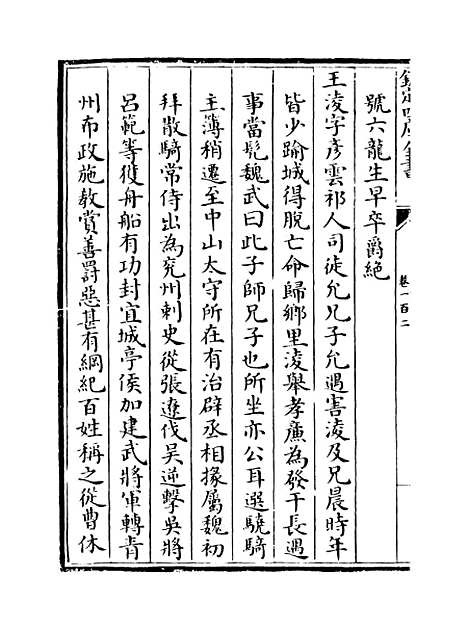 欽定四庫全書
卷一百二
號六龍生早卒爵絶
王淩字彦雲祁人司徒允兄子允遇害淩及兄晨時年
皆少踰城得脱亡命歸鄉里淩舉孝廉為發干長遇
事當髠魏武曰此子師兄子也所坐亦公耳選驍騎
主簿稍遷至中山太守所在有治辟丞相掾屬魏初
拜散騎常侍出為兗州刺史從張遼伐吳逆擊吳將
吕範等獲舟船有功封宜城亭侯加建武將軍轉青
州布政施教賞善罰惡甚有綱紀百姓稱之從曹休